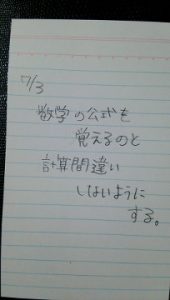 7/3
数学の公式を
覚えるのと
計算間違い
しないように
する。